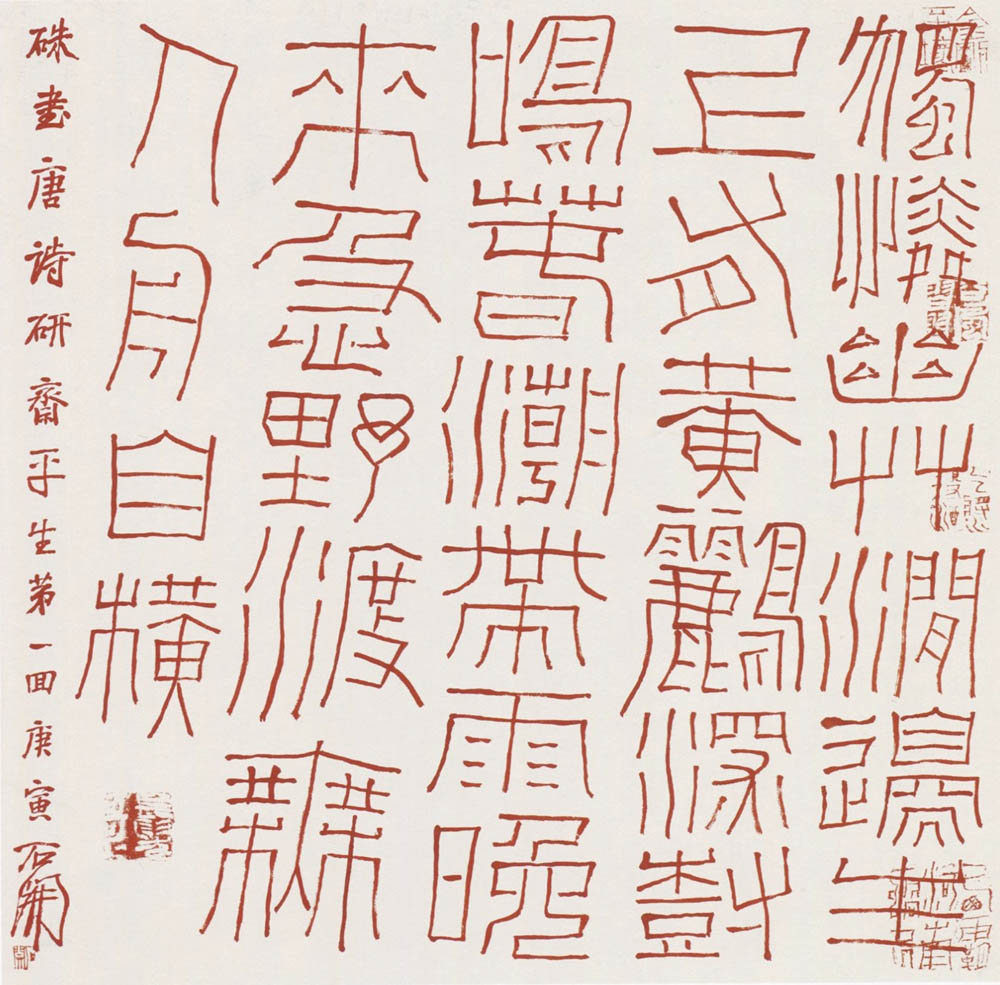 獨憐幽艸澗邊生
上有黃鸝深樹
鳴春潮帶雨晚
來急野渡無
人舟自橫
硃書唐詩研齋平生第一回庚寅石開